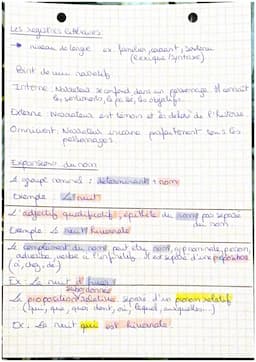 Les registres littéraires
→ niveau de langue ex: familier, courant, soutenu
(lexique / syntaxe)
Point de vue narratif
Interne: Narrateur se confond dans un personnage. Il connait
les sentiments, le passé, les objectifs.
Externe: Narrateur est témoin et en dehors de l'histoire
Omniscient: Narrateur incarne parfaitement tous les
personnages.
Expansions du nom
Le groupe nominal: déterminant + nom
Exemple: La nuit
L'adjectif qualificatif, épithète du nom pas séparé
du nom
Exemple: La nuit hivernale
Le complément du nom peut être nom, gp nominale, pronom,
adverbe, verbe à l'infinitif. Il est séparé d'une préposition
(à, chez, de)
Ex: La nuit d'hiver
subordonnée
La proposition relative séparé d'un pronom relatif
(qui, que, quoi, dont, où, lequel, auxquelles...)
Ex: La nuit qui est hivernale.